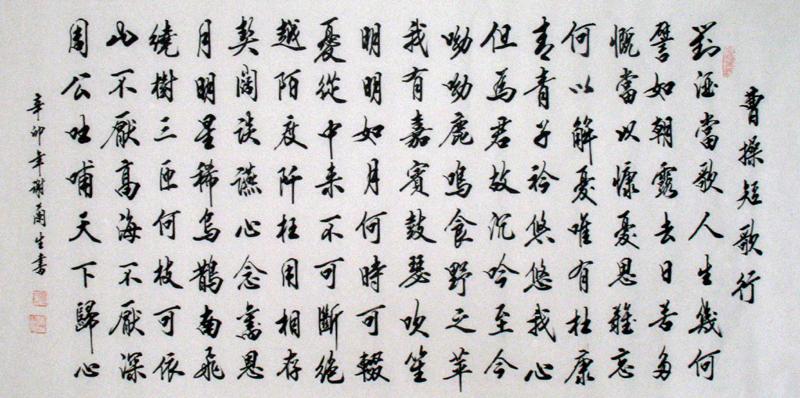 曹操短歌行
對酒當歌人生幾何
譬如朝露去日苦多
慨當以慷憂思難忘
何以解憂唯有杜康
青青子衿悠悠我心
但為君故沉吟至今
呦呦鹿鳴食野之苹
我有嘉賓鼓瑟吹笙
明明如月何時可輟
憂從中来不可斷絕
越陌度阡枉用相存
契闊談讌心念舊恩
月明星稀烏鵲南飛
繞樹三匝何枝可依
山不厭高海不厭深
周公吐哺天下歸心
辛卯年謝生書